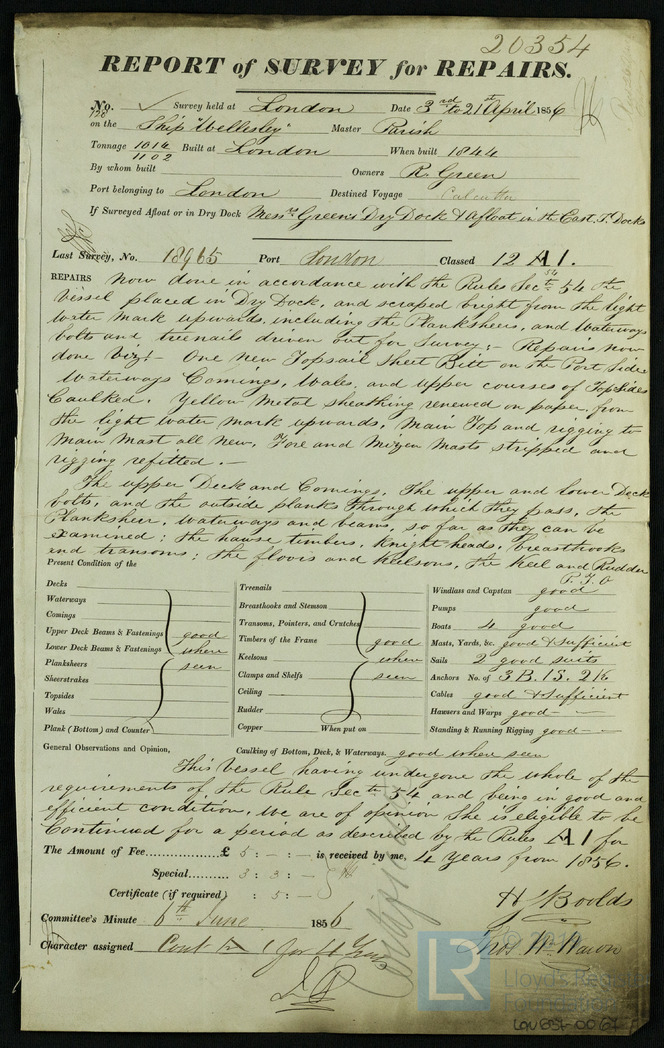 20354
REPORT of SURVEY for REPAIRS.
No. Survey held at London Date 3rd to 21st April 1856
on the Ship "Wellesley" Master Parish
Tonnage 1014 1102 Built at London When built 1844
By whom built Owners R. Green
Port belonging to London Destined Voyage Calcutta
If Surveyed Afloat or in Dry Dock Messrs Greens Dry Dock & Afloat in the East I. Docks
Last Survey, No. 18965 Port London Classed 12 A1.
REPAIRS Now done in accordance with the Rules Sectn 54 the
Vessel placed in Dry Dock, and scraped bright from the light
water mark upwards, including the Planksheers, and Waterways
bolts and treenails driven out for Survey:- Repairs now
done Viz:- One new Topsail Sheet Bitt on the Port Side
Waterways Comings, Wales, and upper courses of Top Sides
Caulked. Yellow Metal sheathing renewed on paper, from
the light water mark upwards. Main Top and rigging to
Main Mast all new. Fore and Mizen Masts stripped and
rigging refitted.-
The upper Deck and Comings, The upper and lower Deck
bolts, and the outside planks through which they pass, the
Planksheer, waterways and beams, so far as they can be
examined: the hawse timbers, Knight heads, breasthooks
end transoms: the floors and Keelsons, the Keel and Rudder
P.T.O
Present Condition of the
Decks
Waterways
Comings
Upper Deck Beams & Fastenings good
Lower Deck Beams & Fastenings where
Planksheers seen
Sheerstrakes
Topsides
Wales
Plank (Bottom) and Counter
Treenails
Breasthooks and Stemson
Transoms, Pointers, and Crutches
Timbers of the Frame good
Keelsons where
Clamps and Shelfs seen
Ceiling
Rudder
Copper When put on
Windlass and Capstan good
Pumps good
Boats 4 good
Masts, Yards, &c. good & sufficient
Sails 2 good suits
Anchors No. of 3 B. 1 S. 2 K
Cables good & sufficient
Hawsers and Warps good
Standing & Running Rigging good
General Observations and Opinion, Caulking of Bottom, Deck, & Waterways. good where seen
This Vessel having undergone the whole of the
requirements of the Rule Sectn 54 and being in good and
efficient condition, we are of opinion She is eligible to be
Continued for a period as described by the Rules A1 for
The Amount of Fee £ 5 : - : - is received by me, 4 Years from 1856.
Special 3 : 3 : -
Certificate (if required) : 5 : -
H J Boolds
Committee's Minute 6th June 1856
Character assigned Contd for 4 Years
© 2019
Lloyd's Register
Foundation